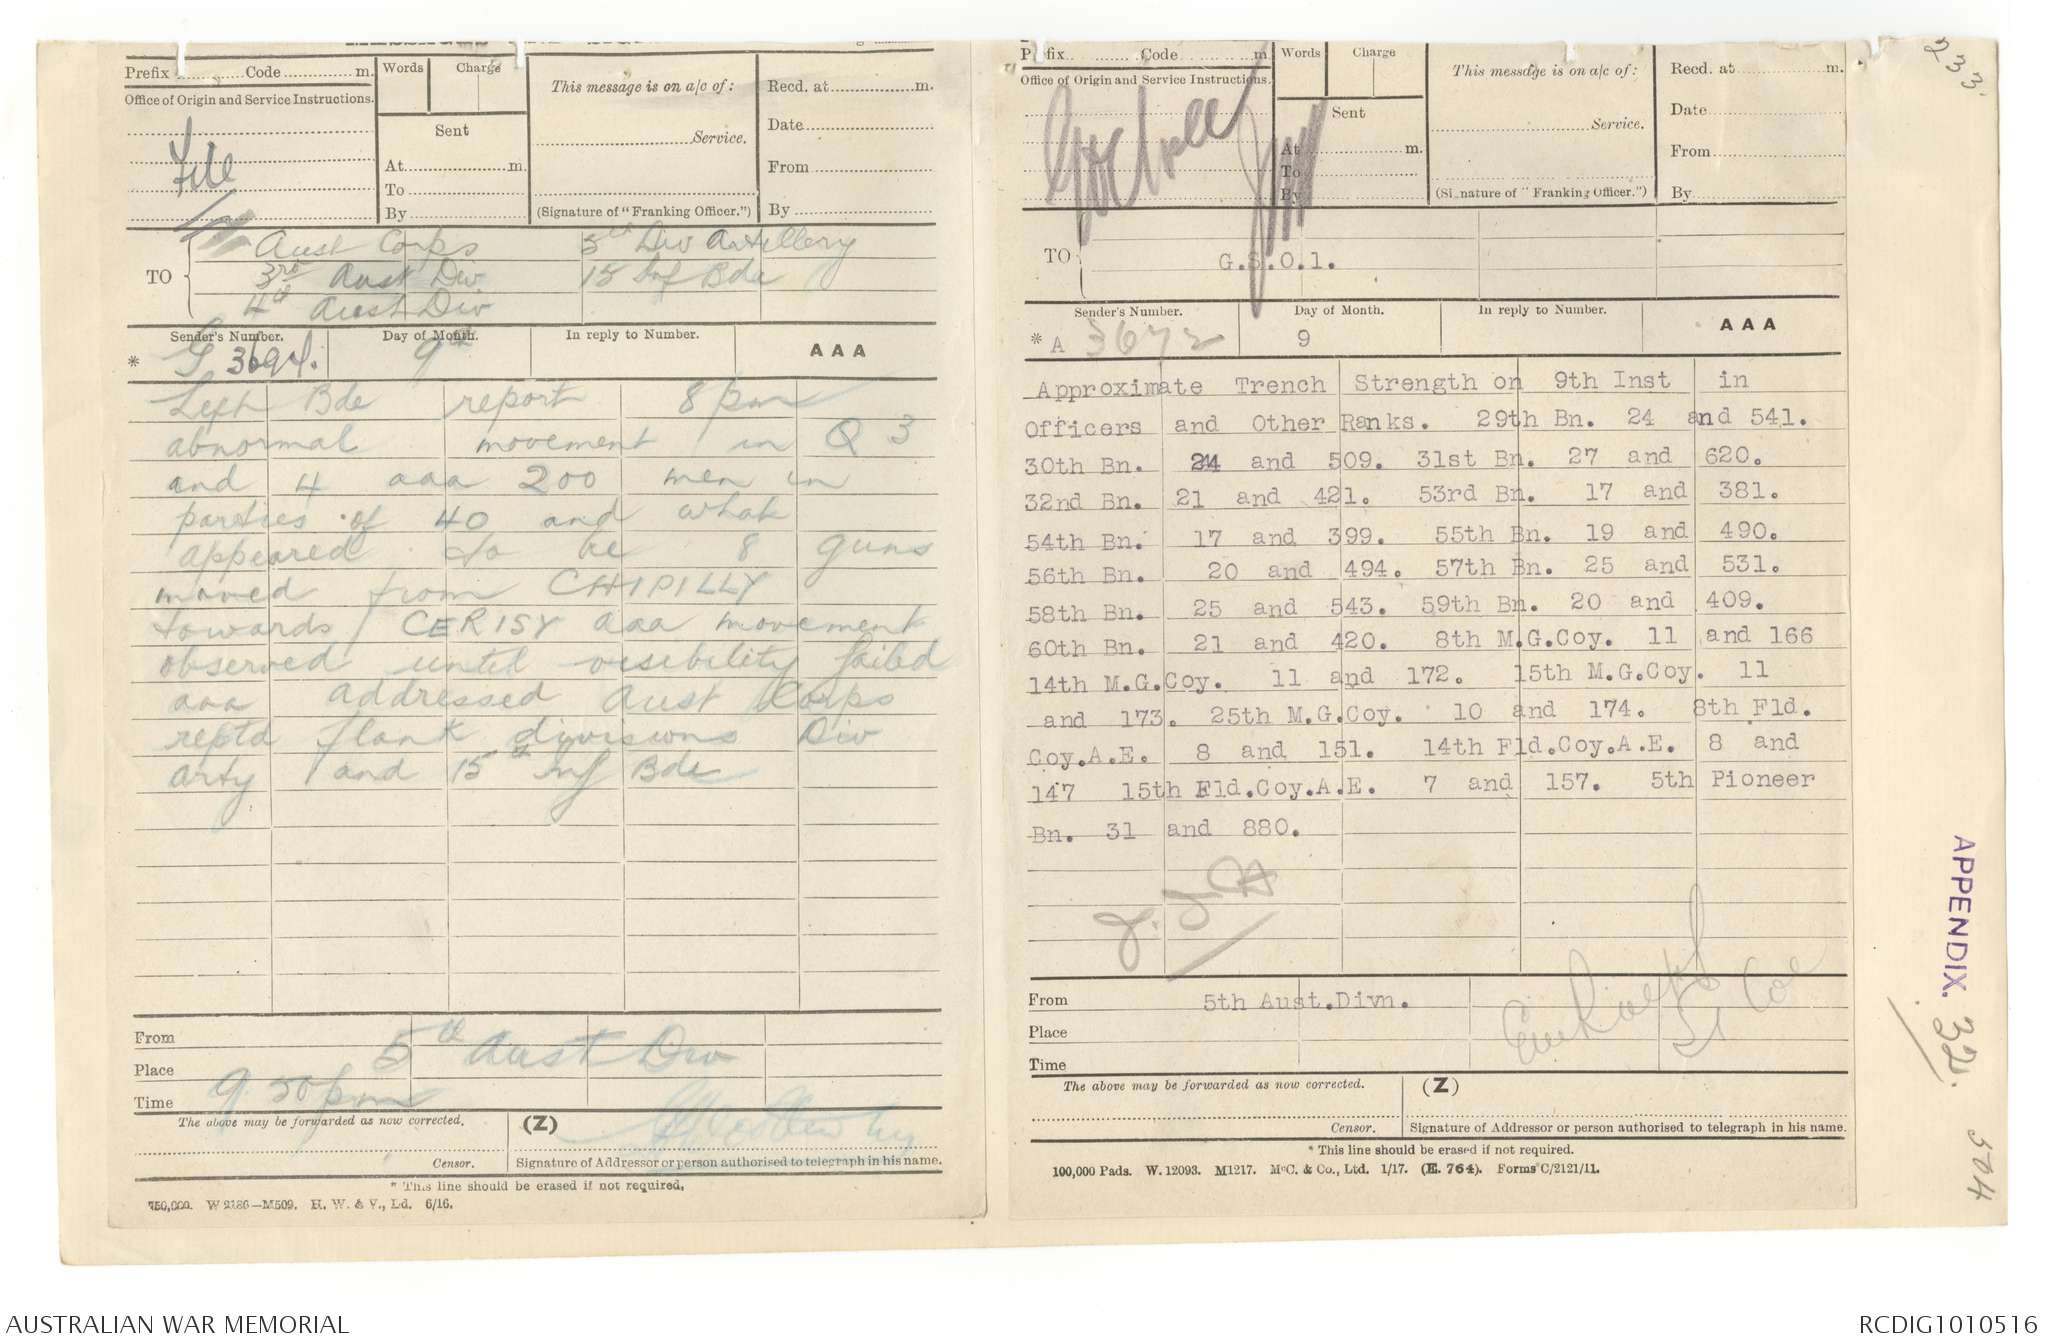 Prefix ............ Code ............ m.
Words
Charge
This message is on a/c of :
Recd. at ............ m.
Office of Origin and Service Instructions.
Sent
Service.
Date
File
At ............ m.
From
To
By
(Signature of "Franking Officer.")
By
TO
Aust Corps 5th Div Artillery
3rd Aust Div 15 Inf Bde
4th Aust Div
Sender's Number.
Day of Month.
In reply to Number.
AAA
* G 3694. 9th
Left Bde report 8 pm
abnormal movement in Q 3
and 4 aaa 200 men in
parties of 40 and what
appeared to be 8 guns
moved from CHIPILLY
towards CERISY aaa movement
observed until visibility failed
aaa addressed Aust Corps
reptd flank divisions Div
arty and 15th Inf Bde
From
5th Aust Div
Place
Time
9.50 pm
The above may be forwarded as now corrected.
(Z)
Censor.
Signature of Addressor or person authorised to telegraph in his name.
* This line should be erased if not required.
750,000. W 2186—M509. H. W. & V., Ld. 6/16.
Prefix ............ Code ............ m.
Words
Charge
This message is on a/c of :
Recd. at ............ m.
Office of Origin and Service Instructions.
Sent
Service.
Date
At ............ m.
From
To
By
(Signature of "Franking Officer.")
By
TO
G.S.O.1.
Sender's Number.
Day of Month.
In reply to Number.
AAA
* A 3672 9
Approximate Trench Strength on 9th Inst in
Officers and Other Ranks. 29th Bn. 24 and 541.
30th Bn. 24 and 509. 31st Bn. 27 and 620.
32nd Bn. 21 and 421. 53rd Bn. 17 and 381.
54th Bn. 17 and 399. 55th Bn. 19 and 490.
56th Bn. 20 and 494. 57th Bn. 25 and 531.
58th Bn. 25 and 543. 59th Bn. 20 and 409.
60th Bn. 21 and 420. 8th M.G.Coy. 11 and 166
14th M.G.Coy. 11 and 172. 15th M.G.Coy. 11
and 173. 25th M.G.Coy. 10 and 174. 8th Fld.
Coy.A.E. 8 and 151. 14th Fld.Coy.A.E. 8 and
147 15th Fld.Coy.A.E. 7 and 157. 5th Pioneer
Bn. 31 and 880.
From
5th Aust.Divn.
Place
Time
The above may be forwarded as now corrected.
(Z)
Censor.
Signature of Addressor or person authorised to telegraph in his name.
* This line should be erased if not required.
100,000 Pads. W. 12093. M1217. McC. & Co., Ltd. 1/17. (E. 764). Forms C/2121/11.
233
APPENDIX. 32.
504
AUSTRALIAN WAR MEMORIAL
RCDIG1010516